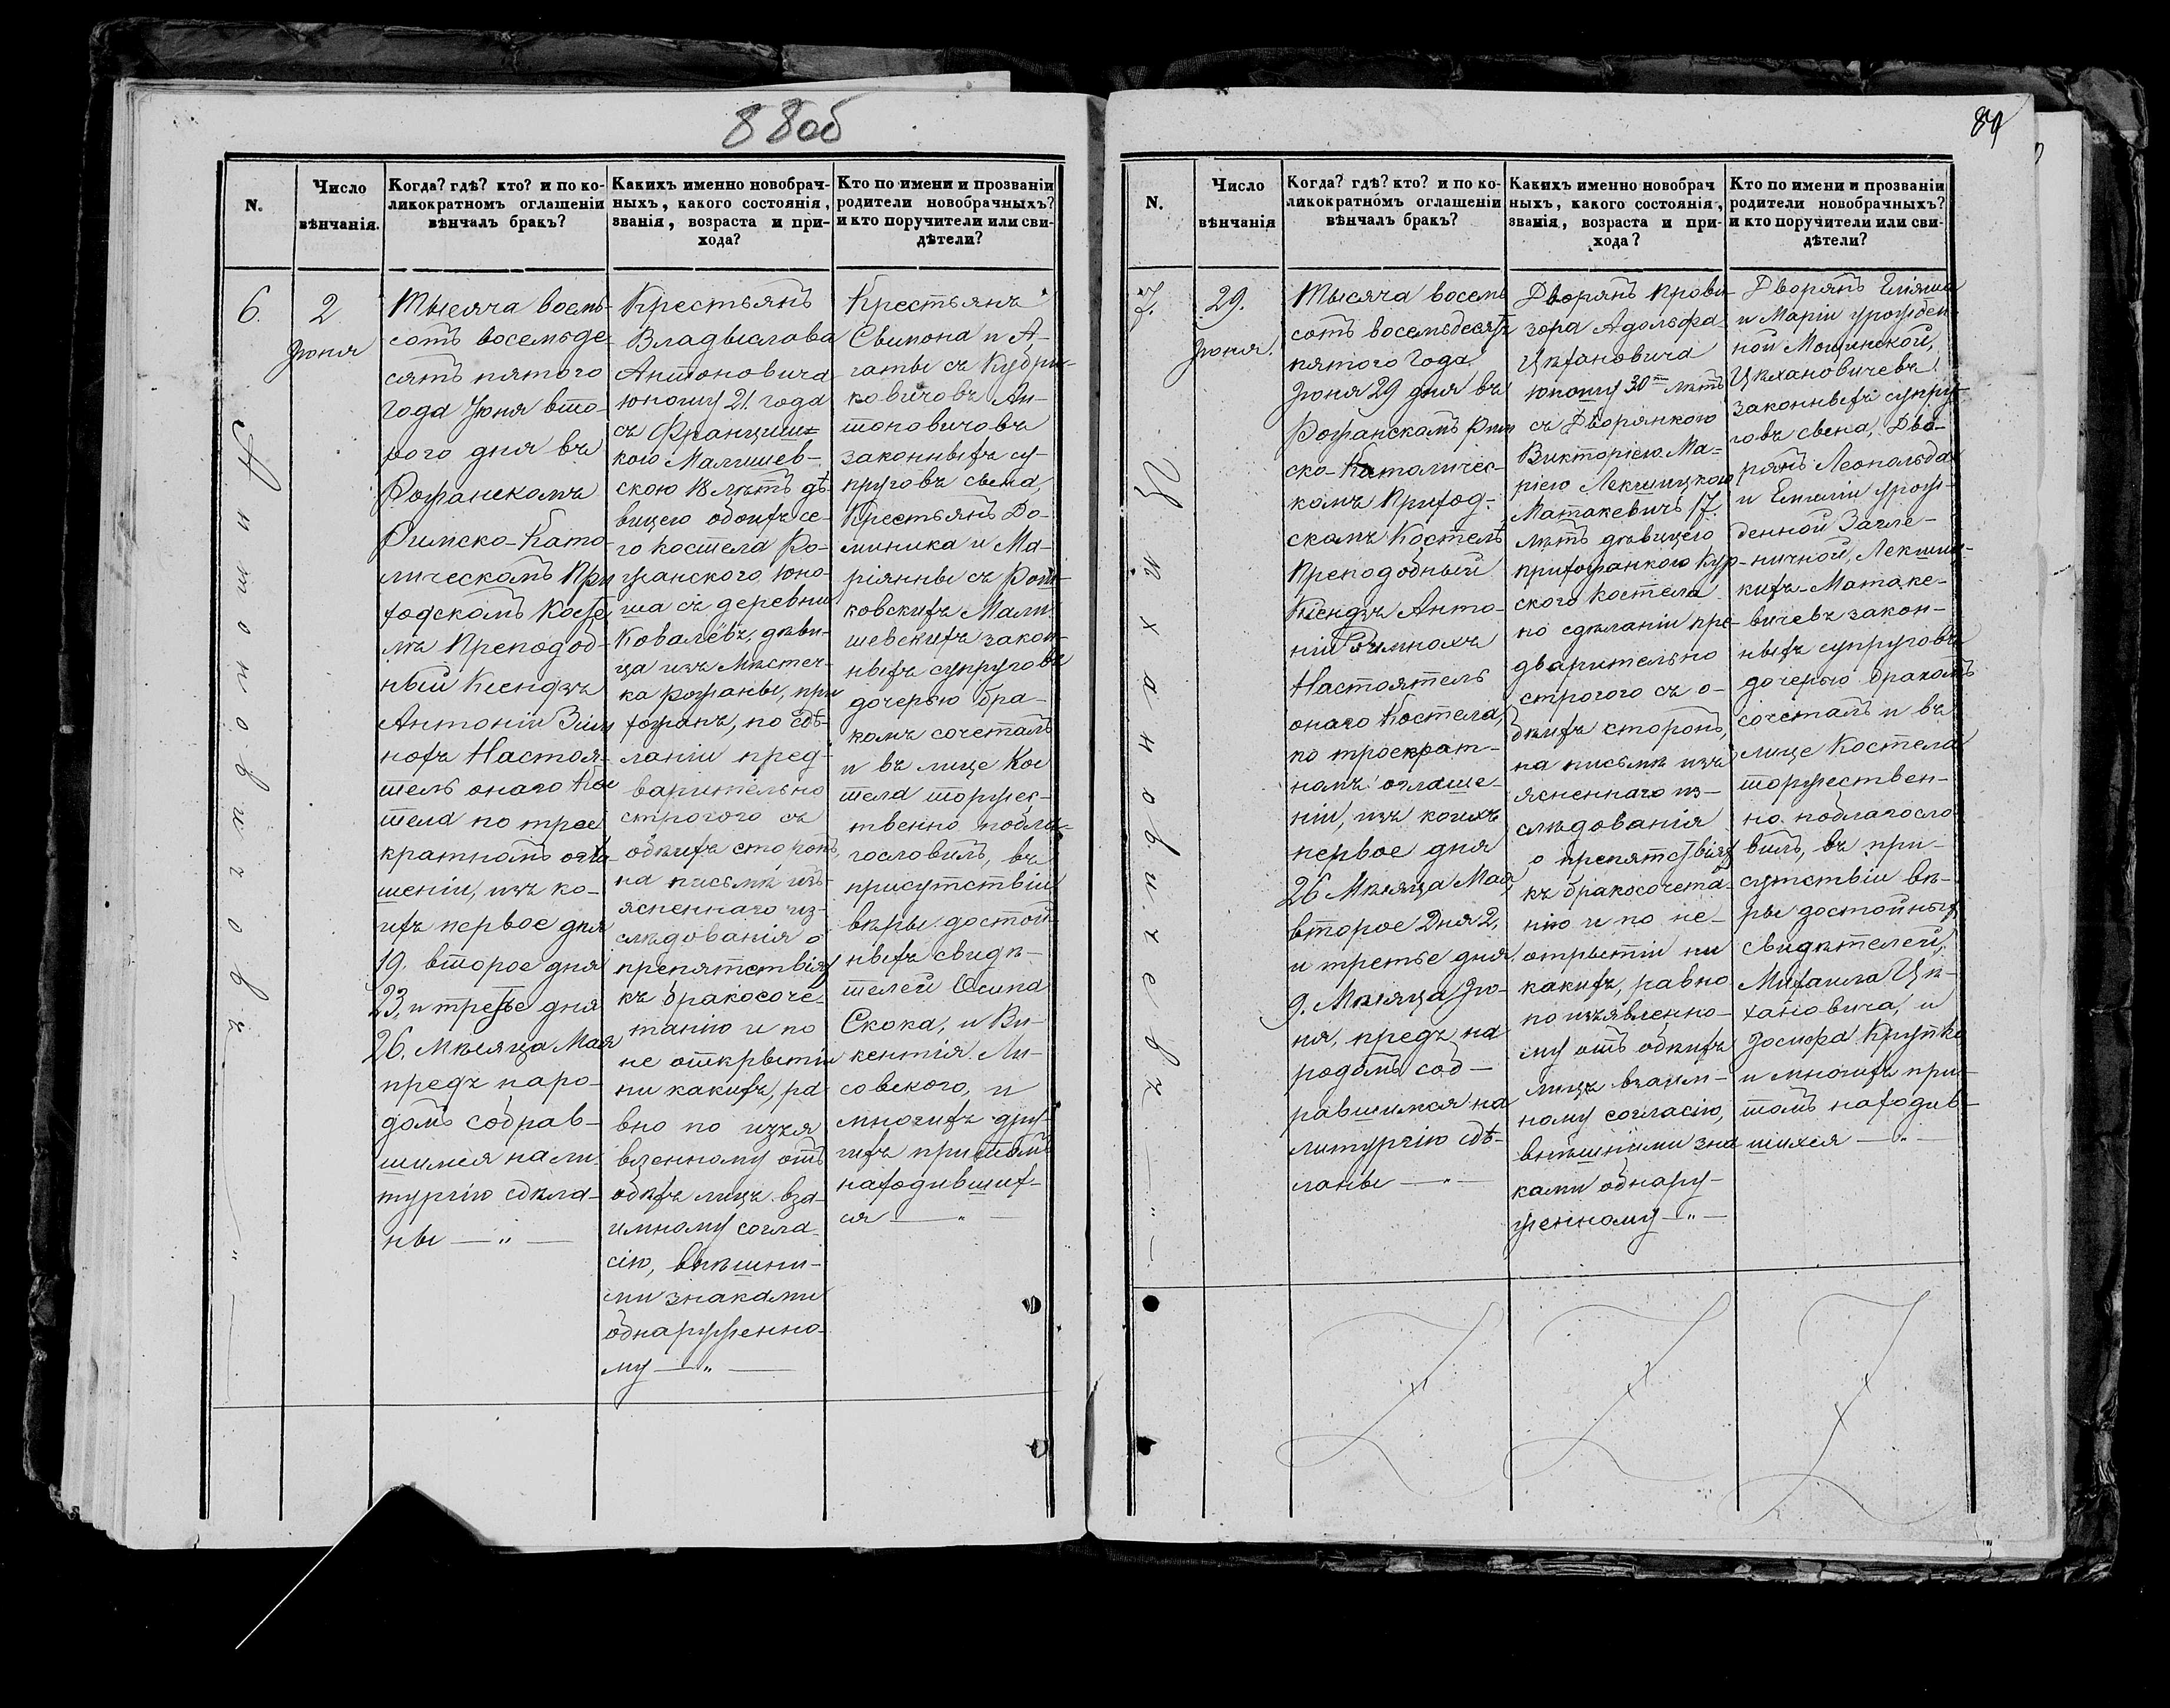 88об
N.
Число
вѣнчанія.
Когда? гдѣ? кто? и по ко-
ликократномъ оглашеніи
вѣнчалъ бракъ?
Какихъ именно новобрач-
ныхъ, какого состоянія,
званія, возраста и при-
хода?
Кто по имени и прозванію
родители новобрачныхъ?
и кто поручители или сви-
дѣтели?
6.
Антоновичовъ
2
Іюня
Тысяча восемь-
сотъ восемьде-
сятъ пятого
года Іюня вто-
рого дня въ
Рожанскомъ
Римско-Като-
лическомъ При
ходскомъ Косте
лѣ Преподоб-
ный Ксендзъ
Антоній Зим
нохъ Настоя-
тель онаго Кос
тела по трое
кратномъ огла
шеніи, изъ ко-
ихъ первое дня
19. второе дня
23, и третье дня
26. Мѣсяца Мая
предъ наро-
домъ собрав-
шимся на ли-
тургію сдѣла-
ны — „ —
Крестьянъ
Владыслава
Антоновича
юношу 21. года
съ Францишъ
кою Малишев-
скою 18 лѣтъ дѣ-
вицею обоихъ се-
го костела Ро-
жанского юно-
ша съ деревни
Ковалёвъ, дѣви-
ца изъ мѣстеч-
ка Рожаны, при
хожанъ, по сдѣ-
ланіи пред-
варительно
строгого съ
обѣихъ сторонъ,
на письмѣ изъ-
ясненнаго из-
слѣдованія о
препятствіях
къ бракосоче-
танію и по
не открытіи
ни какихъ, ра
вно по изъя
вленному отъ
обѣхъ лицъ вза-
имному согла-
сію, внѣшни-
ми знаками
обнаруженно-
му — „ —
Крестьянъ
Свимона и А-
гаты съ Кубри-
ковичовъ Ан-
тоновичовъ
законныхъ су-
пруговъ сына,
Крестьянъ До-
миника и Ма-
ріянны съ
ковскихъ Мали
шевскихъ закон-
ныхъ супруговъ
дочерью бра-
комъ сочеталъ
и въ лице Кос
тела торжес-
твенно побла-
гословилъ, въ
присутствіи
вѣры достой-
ныхъ свидѣ-
телей Осипа
Скока, и Ви-
кентія Ли-
совского, и
многихъ дру-
гихъ притомъ
находившихъ-
ся — „ —
89
N.
Число
вѣнчанія
Когда? гдѣ? кто? и по ко-
ликократномъ оглашеніи
вѣнчалъ бракъ?
Какихъ именно новобрач
ныхъ, какого состоянія,
званія, возраста и при-
хода?
Кто по имени и прозванію
родители новобрачныхъ?
и кто поручители или сви-
дѣтели?
7.
Цѣхановичевъ
29.
Іюня.
Тысяча восемь
сотъ восемьдесятъ
пятого Года
Іюня 29 дня въ
Рожанскомъ Рим
ско-Католичес-
комъ Приход-
скомъ Костелѣ
Преподобный
Ксендзъ Анто-
ній Зимнохъ
Настоятель
онаго Костела,
по троекрат-
номъ оглаше-
ніи, изъ коихъ
первое дня
26 Мѣсяца Мая,
второе Дня 2,
и третье дня
9. Мѣсяца Ію-
ня, предъ на
родомъ соб-
равшимся на
литургію сдѣ-
ланы — „ —
Дворянъ Прови-
зора Адольфа
Цѣхановича
юношу 30ти лѣтъ
съ Дворянкою
Викторіею Ма-
ріею Лекшицкою
Матакевичъ 17.
лѣтъ дѣвицею
прихожанкою Кур-
ского костела
по сдѣланіи пре-
дварительно
строгого съ о-
бѣихъ сторонъ,
на письмѣ изъ
ясненнаго из-
слѣдованія
о препятствіях
къ бракосочета-
нію и по не-
открытіи ни
какихъ, равно
по изъявленно-
му отъ обѣихъ
лицъ взаим-
ному согласію,
внѣшними зна
ками обнару-
женному — „ —
Дворянъ Еліяша
и Маріи урожден-
ной Мощинской,
Цѣхановичевъ
законныхъ супру
говъ сына, Дво-
рянъ Леопольда
и Емиліи урож-
денной
ничной, Лекшиц-
кихъ-Матаке-
вичевъ закон-
ныхъ супруговъ
дочерью бракомъ
сочеталъ и въ
лице Костела
торжествен-
но поблагосло
вилъ, въ при-
сутствіи вѣ-
ры достойныхъ
Свидѣтелей,
Михаила Цѣ-
хановича, и
Іосифа Крупко
и многихъ при-
томъ находив-
шихся — „ —